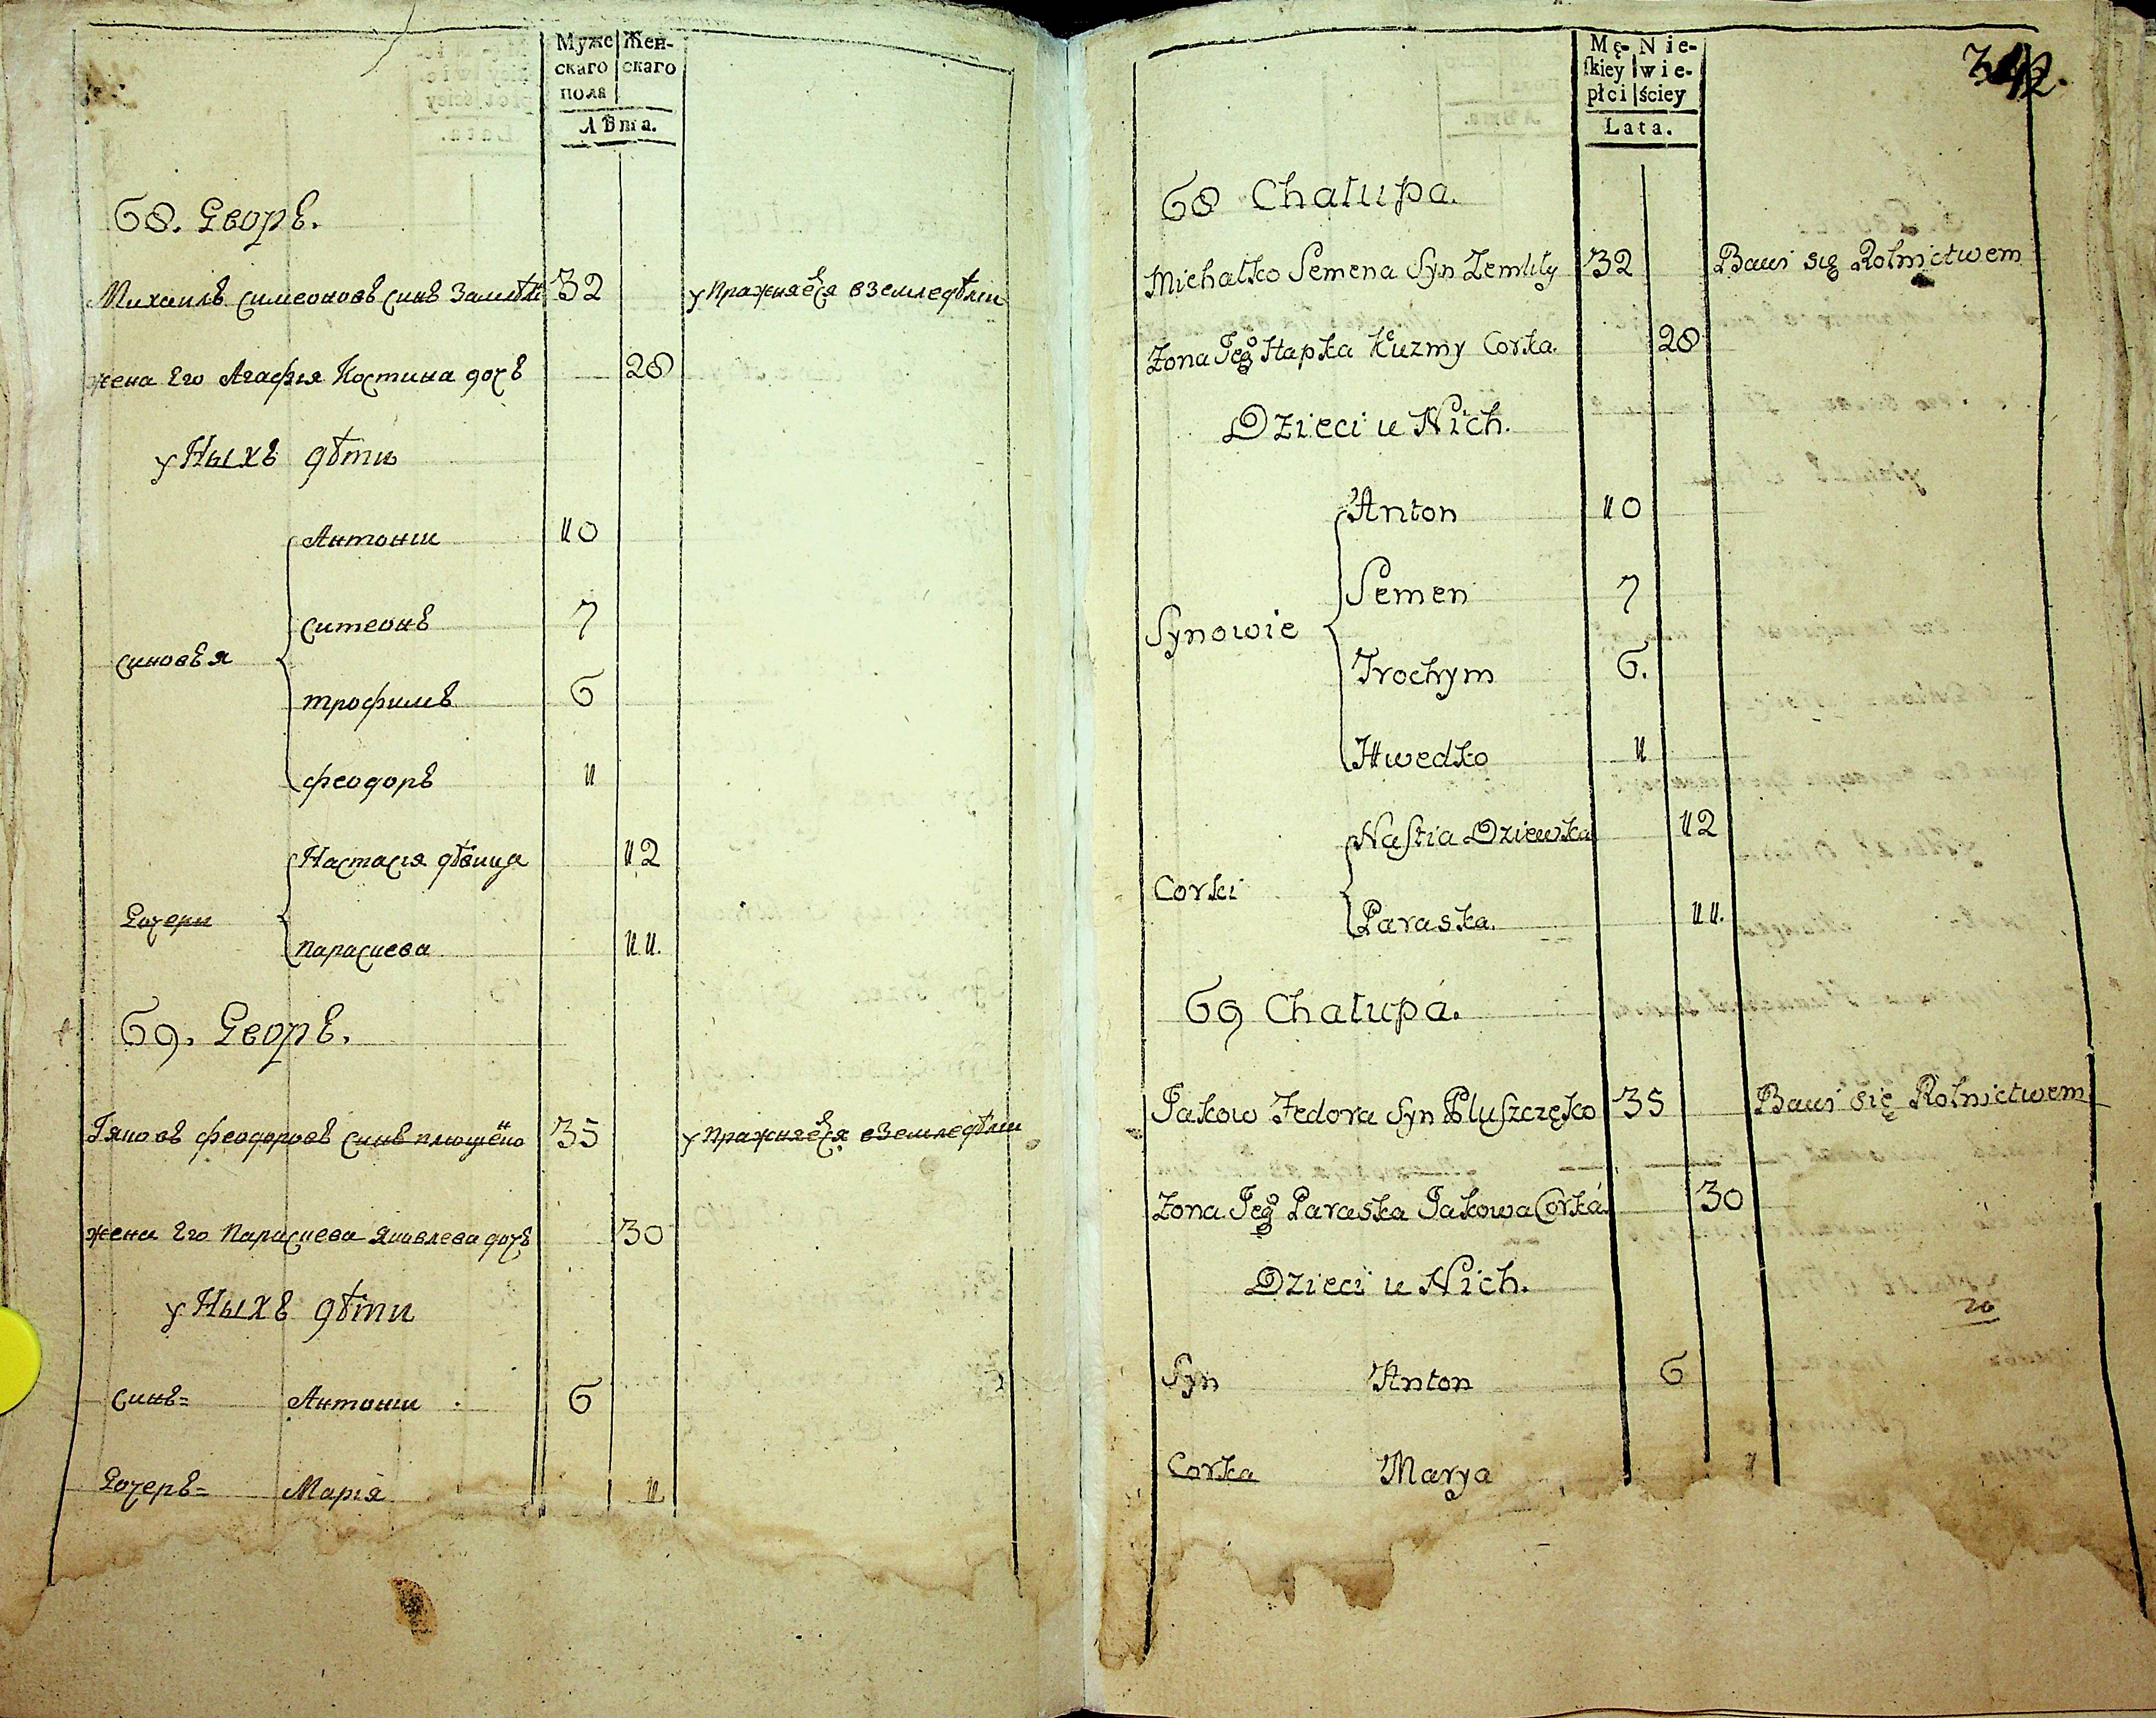 Муже Жен-
скаго скаго
пола
лѣта.
68. Дворъ.
Михаилъ Симеоновъ Синъ 32 упражняеся вземледѣлии
жена Его Агафія Костина дочъ 28
у Ныхъ дѣти
Синовъя
Антонии 10
Симеонъ 7
Трофимъ 6
Феодоръ 1
Дочери
Настасія дѣвица 12
Парасиева 11.
69. Дворъ.
Іяковъ Феодоровъ Синъ плющёко 35 упражняеся вземледѣлии
жена Его Парасиева Яковлева дочъ 30
у Ныхъ дѣти
Синъ= Антонии 6
Дочеръ= Марія 1
Mę- Nie-
ſkiey wie-
płci ściey
Lata.
342.
68 Chałupa.
Michałko Semena Syn 32 Bawi się Rolnictwem
Żona Jego Hapka Kuzmy Corka. 28
Dzieci u Nich.
Synowie
Anton 10
Semen 7
Trochym 6.
Hwedko 1
Corki
Naſtia Dziewka 12
Paraska. 11.
69 Chałupa.
Jakow Fedora Syn Pluszczęko 35 Bawi się Rolnictwem
Żona Jego Paraska Jakowa Corka 30
Dzieci u Nich.
Syn Anton 6
Corka Marya 1